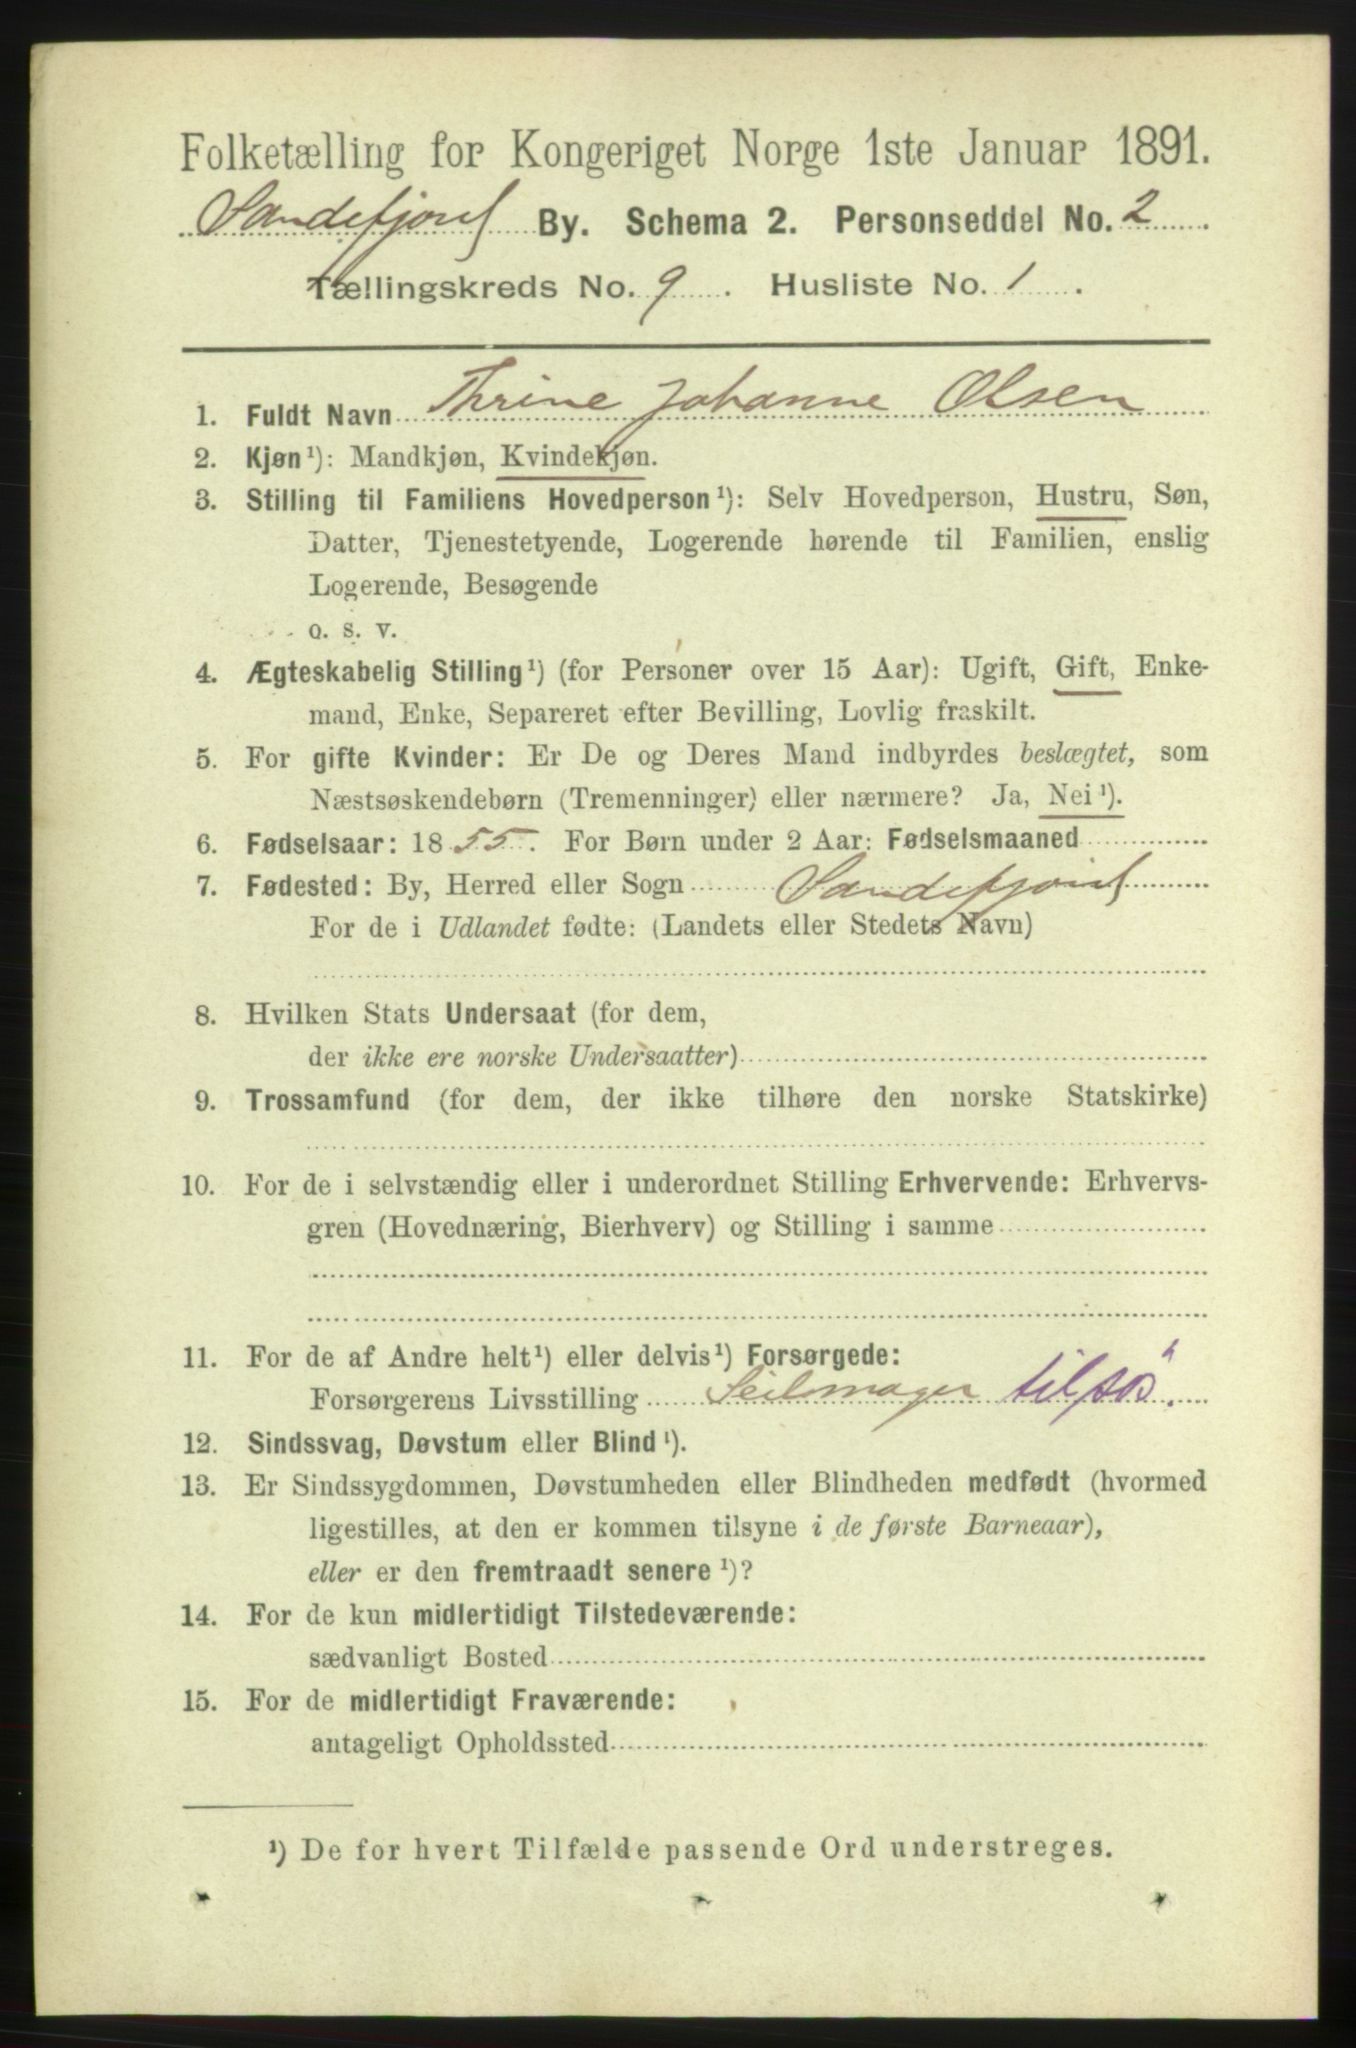 Folketælling for Kongeriget Norge 1ste Januar 1891.
Sandefjord By. Schema 2. Personseddel No. 2
Tællingskreds No. 9. Husliste No. 1.
1. Fuldt Navn Thrine Johanne Olsen
2. Kjøn¹): Mandkjøn, Kvindekjøn.
3. Stilling til Familiens Hovedperson¹): Selv Hovedperson, Hustru, Søn,
Datter, Tjenestetyende, Logerende hørende til Familien, enslig
Logerende, Besøgende
o. s. v.
4. Ægteskabelig Stilling¹) (for Personer over 15 Aar): Ugift, Gift, Enke-
mand, Enke, Separeret efter Bevilling, Lovlig fraskilt.
5. For gifte Kvinder: Er De og Deres Mand indbyrdes beslægtet, som
Næstsøskendebørn (Tremenninger) eller nærmere? Ja, Nei¹).
6. Fødselsaar: 1855. For Børn under 2 Aar: Fødselsmaaned
7. Fødested: By, Herred eller Sogn Sandefjord
For de i Udlandet fødte: (Landets eller Stedets Navn)
8. Hvilken Stats Undersaat (for dem,
der ikke ere norske Undersaatter)
9. Trossamfund (for dem, der ikke tilhøre den norske Statskirke)
10. For de i selvstændig eller i underordnet Stilling Erhvervende: Erhvervs-
gren (Hovednæring, Bierhverv) og Stilling i samme
11. For de af Andre helt¹) eller delvis¹) Forsørgede:
Forsørgerens Livsstilling Seilmager tilsøs.
12. Sindssvag, Døvstum eller Blind¹).
13. Er Sindssygdommen, Døvstumheden eller Blindheden medfødt (hvormed
ligestilles, at den er kommen tilsyne i de første Barneaar),
eller er den fremtraadt senere¹)?
14. For de kun midlertidigt Tilstedeværende:
sædvanligt Bosted
15. For de midlertidigt Fraværende:
antageligt Opholdssted
¹) De for hvert Tilfælde passende Ord understreges.